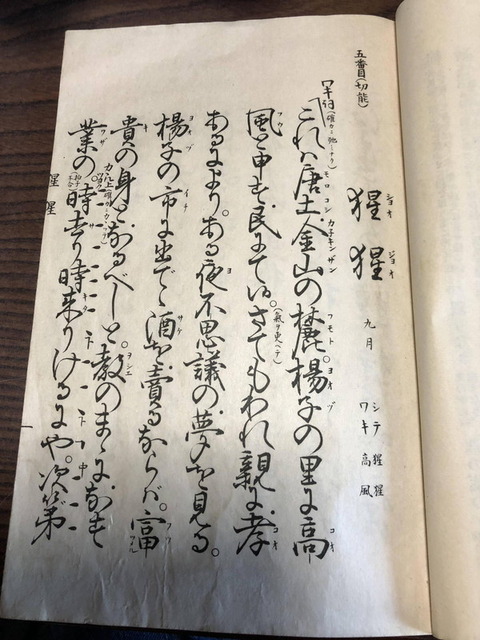 五番目(切能)
猩猩 九月 シテ 猩猩
ワキ 高風
ワキ詞
これハ唐土金山の麓。楊子の里に高
風と申す民にて候。さてもわれ親に孝
あるにより。ある夜不思議の夢を見る。
楊子の市に出でゝ酒を賣るならバ。富
貴の身となるべしと。教のまゝになす
業の。時去り時来りけるにや。次第
猩猩